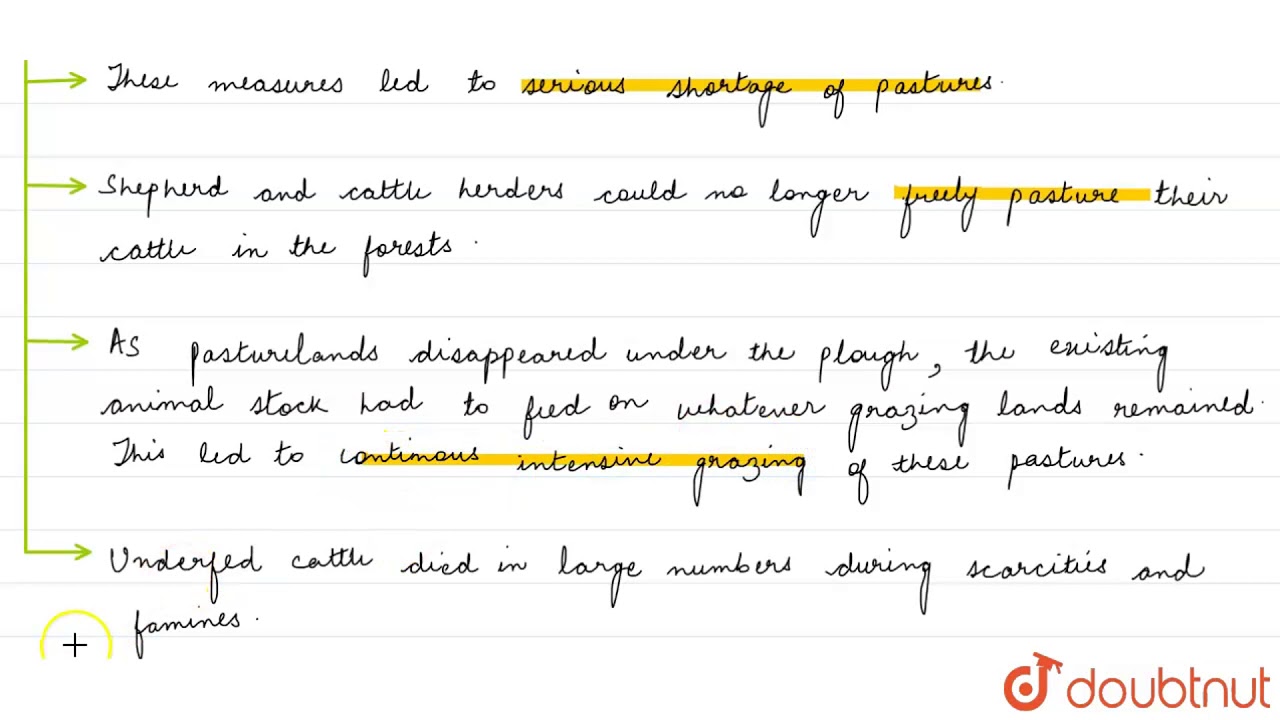 These measures led to serious shortage of pastures.
Shepherd and cattle herders could no longer freely pasture their
cattle in the forests.
As pasturelands disappeared under the plough, the existing
animal stock had to feed on whatever grazing lands remained.
This led to continous intensive grazing of these pastures.
Underfed cattle died in large numbers during scarcities and
famines.
doubtnut